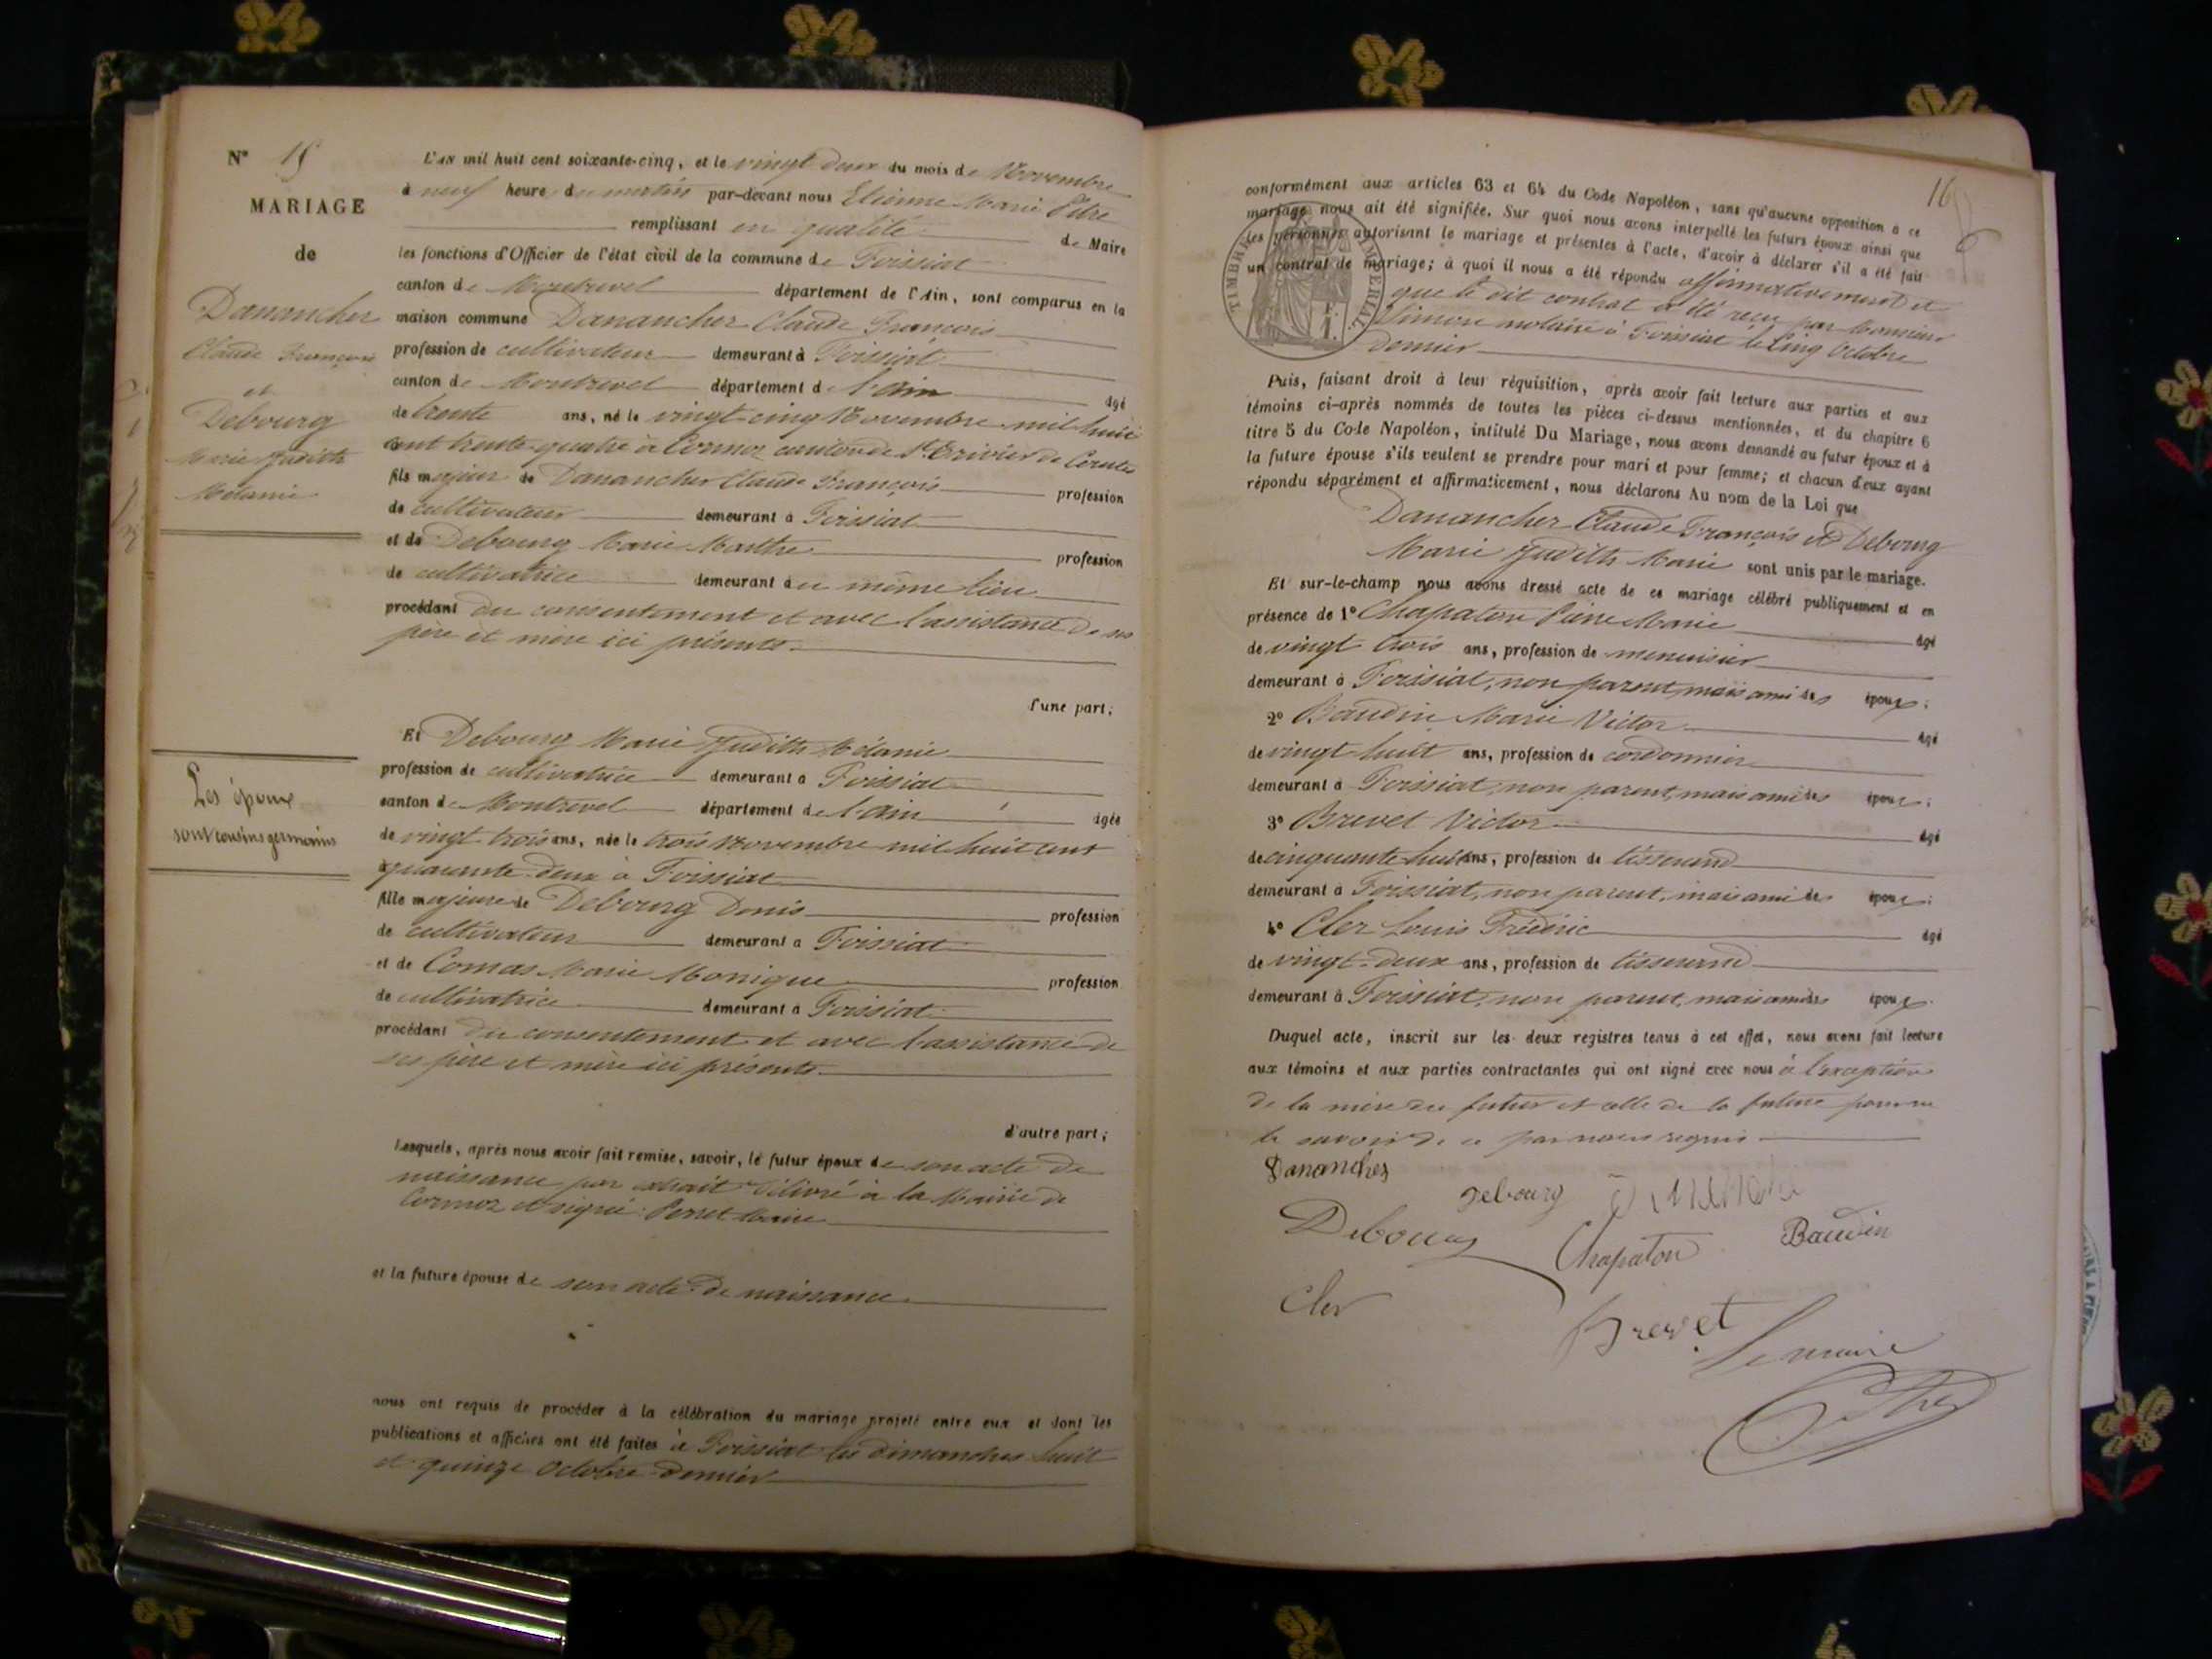 N° 15
MARIAGE
de
Danancher
Claude François
et
Debourg
Marie Judith
Mélanie
Les époux
sont cousins germains
L'AN mil huit cent soixante-cinq, et le vingt deux du mois de Novembre
à neuf heure du matin par-devant nous Etienne Marie
remplissant en qualité de Maire
les fonctions d'Officier de l'état civil de la commune de Foissiat
canton de Montrevel département de l'Ain, sont comparus en la
maison commune Danancher Claude François
profession de cultivateur demeurant à Foissiat
canton de Montrevel département de l'ain âgé
de trente ans, né le vingt-cinq Novembre mil huit
cent trente-quatre à Cormoz canton de St Trivier de Courtes
fils majeur de Danancher Claude François profession
de cultivateur demeurant à Foissiat
et de Debourg Marie Marthe profession
de cultivatrice demeurant au même lieu
procédant du consentement et avec l'assistance de ses
père et mère ici présents
l'une part;
Et Debourg Marie Judith Mélanie
profession de cultivatrice demeurant à Foissiat
canton de Montrevel département de l'ain âgée
de vingt trois ans, née le trois Novembre mil huit cent
quarante-deux à Foissiat
fille majeure de Debourg Denis profession
de cultivateur demeurant à Foissiat
et de Comas Marie Monique profession
de cultivatrice demeurant à Foissiat
procédant du consentement et avec l'assistance de
ses père et mère ici présents
d'autre part;
Lesquels, après nous avoir fait remise, savoir, le futur époux de son acte de
naissance par extrait délivré à la Mairie de
Cormoz et signé: Perret Maire
et la future épouse de son acte de naissance
nous ont requis de procéder à la célébration du mariage projeté entre eux et dont les
publications et affiches ont été faites à Foissiat les dimanches huit
et quinze Octobre dernier
16
conformément aux articles 63 et 64 du Code Napoléon, sans qu'aucune opposition à ce
mariage nous ait été signifiée. Sur quoi nous avons interpellé les futurs époux ainsi que
les personnes autorisant le mariage et présentes à l'acte, d'avoir à déclarer s'il a été fait
un contrat de mariage; à quoi il nous a été répondu affirmativement et
que le dit contrat a été reçu par Monsieur
Simon notaire à Foissiat le cinq Octobre
dernier
TIMBRE IMPERIAL
Puis, faisant droit à leur réquisition, après avoir fait lecture aux parties et aux
témoins ci-après nommés de toutes les pièces ci-dessus mentionnées, et du chapitre 6
titre 5 du Code Napoléon, intitulé Du Mariage, nous avons demandé au futur époux et à
la future épouse s'ils veulent se prendre pour mari et pour femme; et chacun d'eux ayant
répondu séparément et affirmativement, nous déclarons Au nom de la Loi que
Danancher Claude François et Debourg
Marie Judith Marie sont unis par le mariage.
Et sur-le-champ nous avons dressé acte de ce mariage célébré publiquement et en
présence de 1° Chapaton Pierre Marie âgé
de vingt trois ans, profession de menuisier
demeurant à Foissiat, non parent, mais ami des époux;
2° Baudin Marie Victor âgé
de vingt huit ans, profession de cordonnier
demeurant à Foissiat, non parent, mais ami des époux;
3° Brevet Victor âgé
de cinquante huit ans, profession de tisserand
demeurant à Foissiat, non parent, mais ami des époux;
4° Cler Louis Frédéric âgé
de vingt-deux ans, profession de tisserand
demeurant à Foissiat, non parent, mais ami des époux.
Duquel acte, inscrit sur les deux registres tenus à cet effet, nous avons fait lecture
aux témoins et aux parties contractantes qui ont signé avec nous à l'exception
de la mère du futur et celle de la future pour ne
le savoir de ce par nous requis
Dananches
debourg
Debourg
Chapaton
Baudin
Cler
Brevet
Le maire